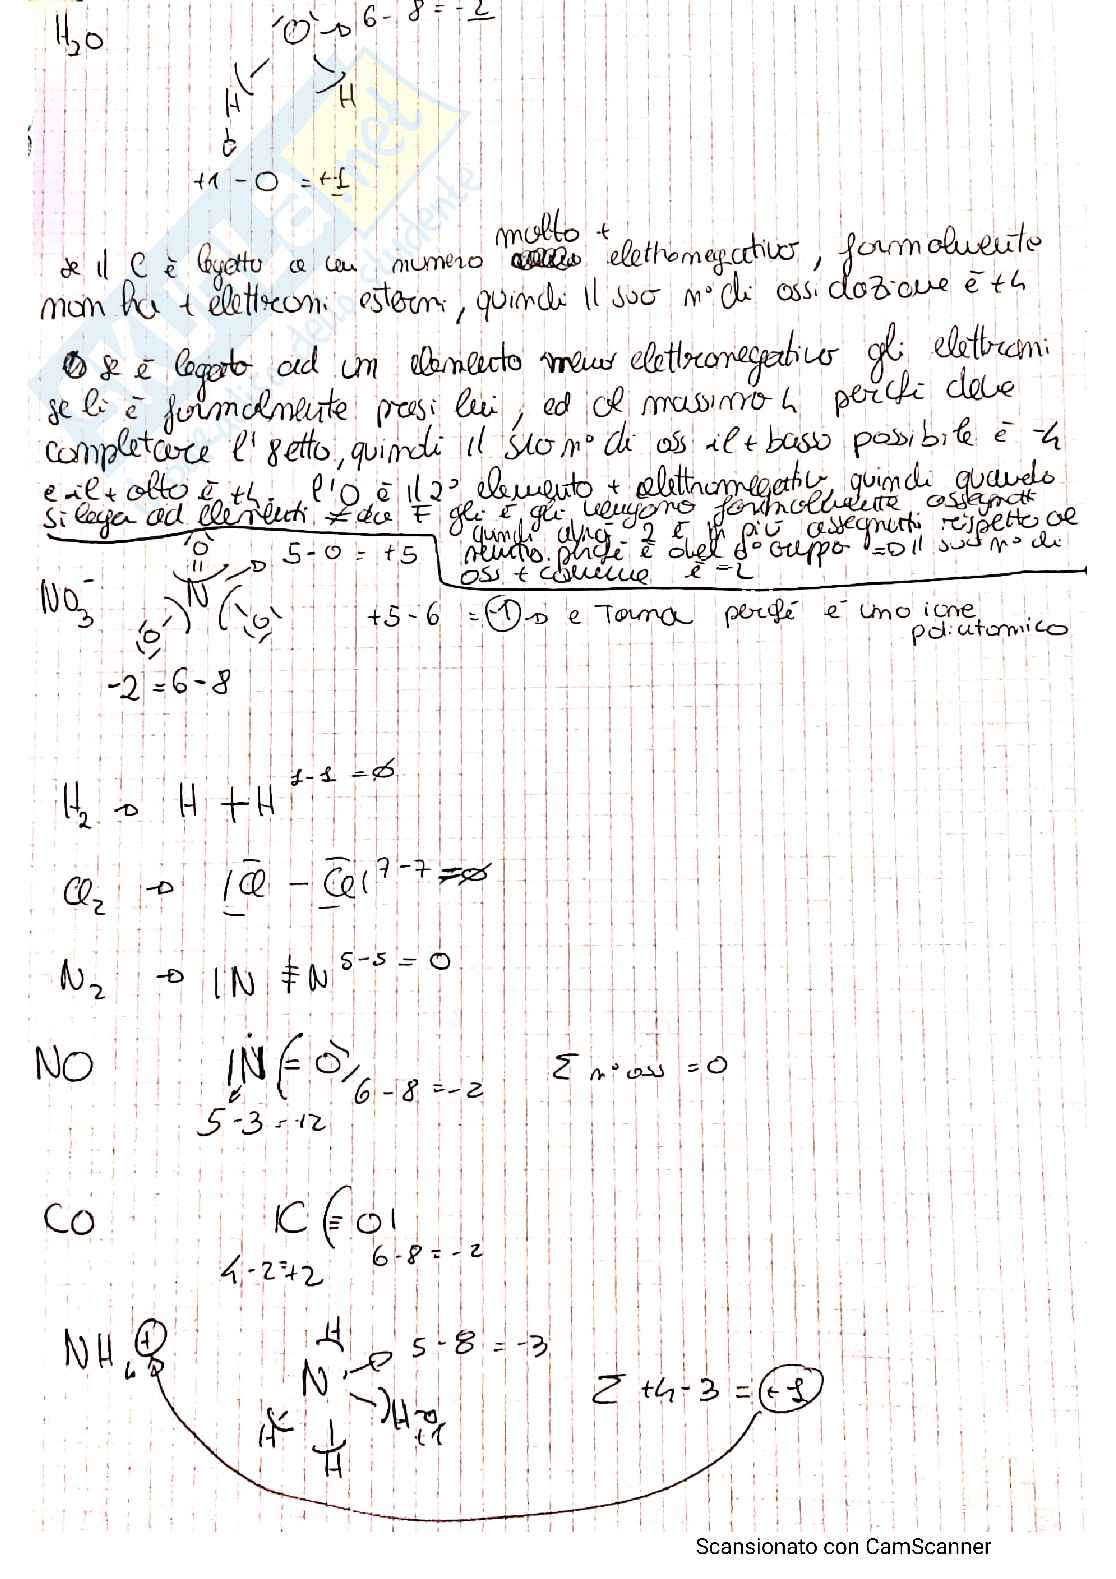 H₂O
O → 6-8 = -2
H H
+1 - 0 = +1
molto +
se il C è legatto a un numero elettronegativo, formalmente
non ha + elettroni esterni, quindi il suo n° di ossidazione è +4
se è legato ad un elemento meno elettronegativo gli elettroni
se li è formalmente presi lui, ed al massimo 4 perché deve
completare l'8etto, quindi il suo n° di oss il + basso possibile è -4
e il + alto è +4. l'O è il 2° elemento + elettronegativo, quindi quando
si lega ad elementi ≠ da F gli e⁻ gli vengono formalmente assegnati
quindi avrà 2 e⁻ in più assegnatti rispetto al
neutro perché è del 6° gruppo => il suo n° di
oss + comune è -2
NO₃⁻
O
N → 5-0 = +5
O O
+5-6 = -1 → e Torna perché è uno ione
poliatomico
-2 = 6-8
H₂ → H + H 1-1 = ∅
Cl₂ → |Cl - Cl| 7-7 = ∅
N₂ → |N ≡ N 5-5 = 0
NO |N = O 6-8 = -2 Σ n° oss = 0
5-3 = +2
CO |C ≡ O|
4-2 = +2 6-8 = -2
NH₄⁺
H
N → 5-8 = -3
H H → +1
H
Σ +4-3 = +1
Scansionato con CamScanner